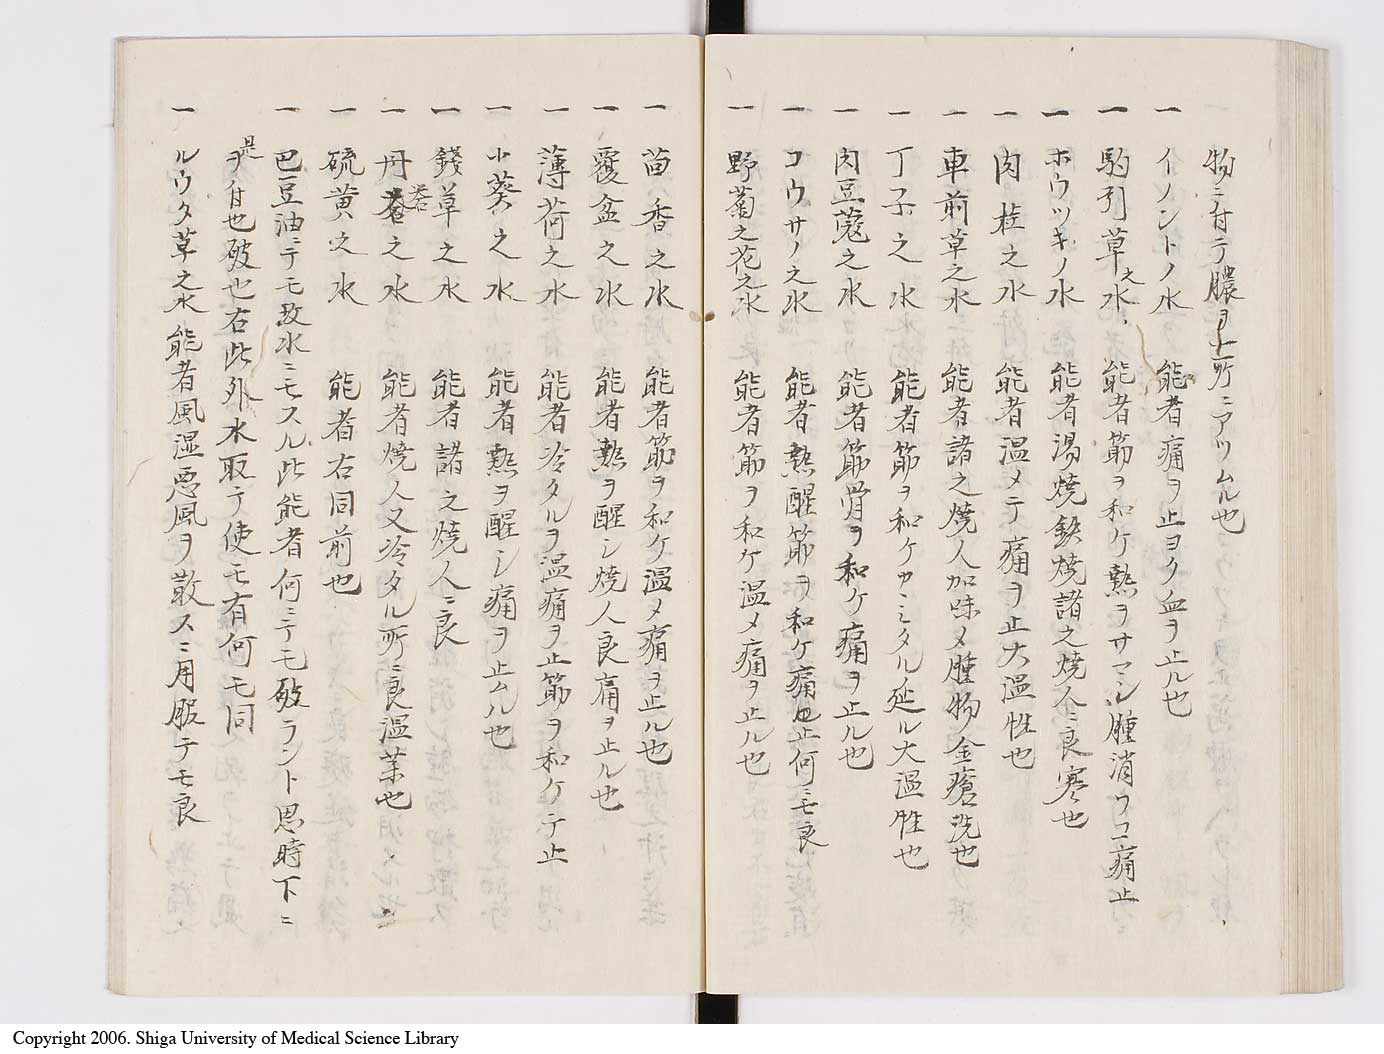 物ニ付テ膿ヲ上所ニアツムル也
一 イノントノ水 能者痛ヲ止ヨク血ヲ止ル也
一 駒引草之水 能者筋ヲ和ケ熱ヲサマシ腫消ウコ痛止
一 ホウツキノ水 能者湯焼鉄焼諸之焼人ニ良寒也
一 肉桂之水 能者温メテ痛ヲ止大温性也
一 車前草之水 能者諸之焼人加味メ腫物金瘡洗也
一 丁子之水 能者筋ヲ和ケカミタル延ル大温性也
一 肉豆蔻之水 能者筋骨ヲ和ケ痛ヲ止ル也
一 コウサノ之水 能者熱醒筋ヲ和ケ痛也止何ニモ良
一 野菊之花之水 能者筋ヲ和ケ温メ痛ヲ止ル也
一 茴香之水 能者筋ヲ和ケ温メ痛ヲ止ル也
一 覆盆之水 能者熱ヲ醒シ焼人良痛ヲ止ル也
一 薄荷之水 能者冷タルヲ温痛ヲ止筋ヲ和ケテ止
一 小葵之水 能者熱ヲ醒シ痛ヲ止ムル也
一 錢草之水 能者諸之焼人ニ良
一 丹之水 能者焼人又冷タル所ニ良温薬也
一 硫黄之水 能者右同前也
一 巴豆油ニテモ故水ニモスル此能者何ニテモ破ラント思時下ニ
是ヲ付也破也右此外水取テ使モ有何モ同
一 ルウタ草之水 能者風湿悪風ヲ散スニ用服テモ良
Copyright 2006. Shiga University of Medical Science Library